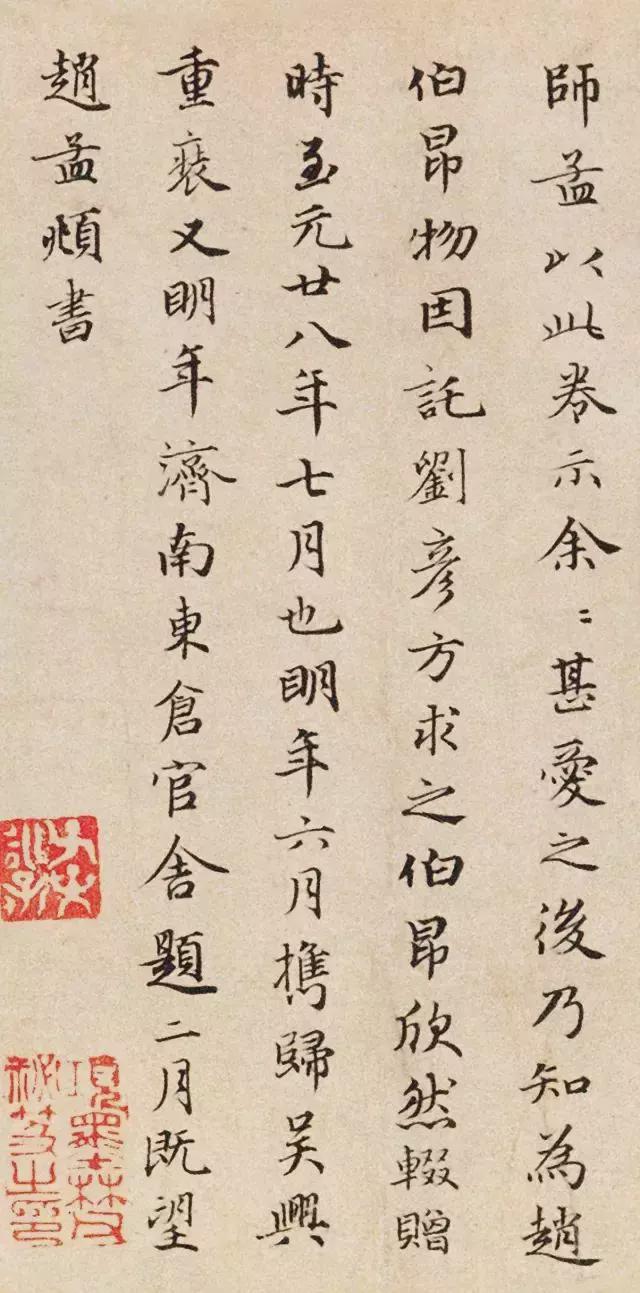 師孟以此卷示余〻甚愛之後乃知為趙
伯昂物因託劉彥方求之伯昂欣然輟贈
時至元廿八年七月也明年六月攜歸吴興
重裝又明年濟南東倉官舍題二月既望
趙孟頫書
項墨林父
祕笈之印